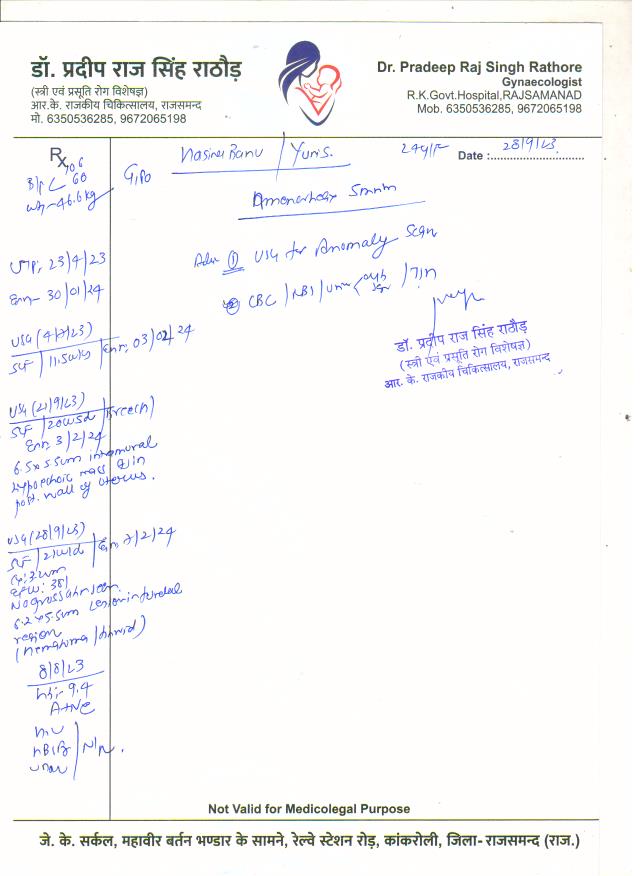 डॉ. प्रदीप राज सिंह राठौड़
(स्त्री एवं प्रसूति रोग विशेषज्ञ)
आर.के. राजकीय चिकित्सालय, राजसमन्द
मो. 6350536285, 9672065198
Dr. Pradeep Raj Singh Rathore
Gynaecologist
R.K.Govt.Hospital,RAJSAMANAD
Mob. 6350536285, 9672065198
Rx
Banu / Yunis.
24y/F
Date : 28/9/23
B/P 106
60
46.6 kg
G1P0
5
Adv ① USG for Anomaly Scan
② CBC / RBS /
23/4/23
30/01/24
USG (4/7/23)
SLF / 11.5 / 03/02/24
USG (21/9/23)
SLF / 20w5d / Breech
3/2/24
6.5x5.5cm intramural
hypoechoic mass in
post. wall of uterus.
USG (28/9/23)
SLF / 21w1d / 7/2/24
EFW: 381
No gross
6.2x5.5cm lesion in fundal
region
8/8/23
Hb:- 9.4
N/N.
डॉ. प्रदीप राज सिंह राठौड़
(स्त्री एवं प्रसूति रोग विशेषज्ञ)
आर. के. राजकीय चिकित्सालय, राजसमन्द
Not Valid for Medicolegal Purpose
जे. के. सर्कल, महावीर बर्तन भण्डार के सामने, रेल्वे स्टेशन रोड़, कांकरोली, जिला- राजसमन्द (राज.)